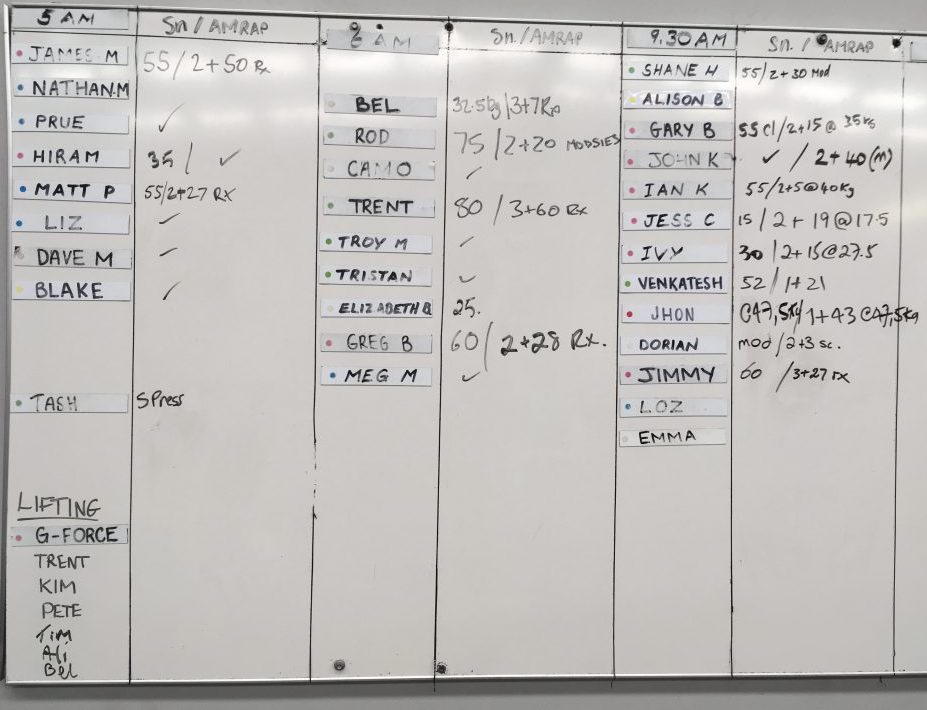 5 AM
Sn / AMRAP
JAMES M 55/2+50 Rx
NATHAN.M
PRUE ✓
HIRAM 35 / ✓
MATT P 55/2+27 RX
LIZ ✓
DAVE M ✓
BLAKE ✓
TASH SPress
LIFTING
G-FORCE
TRENT
KIM
PETE
Tim
Ali
Bel
8 AM
Sn. / AMRAP
BEL 32.5kg / 3+7Rx
ROD 75 / 2+20 MODSIES
CAMO ✓
TRENT 80 / 3+60 Rx
TROY M ✓
TRISTAN ✓
ELIZABETH B 25.
GREG B 60 / 2+28 Rx.
MEG M ✓
9.30 AM
Sn. / AMRAP
SHANE H 55/2+30 Mod
ALISON B
GARY B 55 cl/2+15@ 35kg
JOHN K ✓ / 2+40(m)
IAN K 55/2+5@40kg
JESS C 15 / 2+ 19@17.5
IVY 30 / 2+15@27.5
VENKATESH 52 / 1+21
JHON C47,5kg/1+43 C47,5kg
DORIAN mod / 2+3 sc.
JIMMY 60 / 3+27 rx
LOZ
EMMA